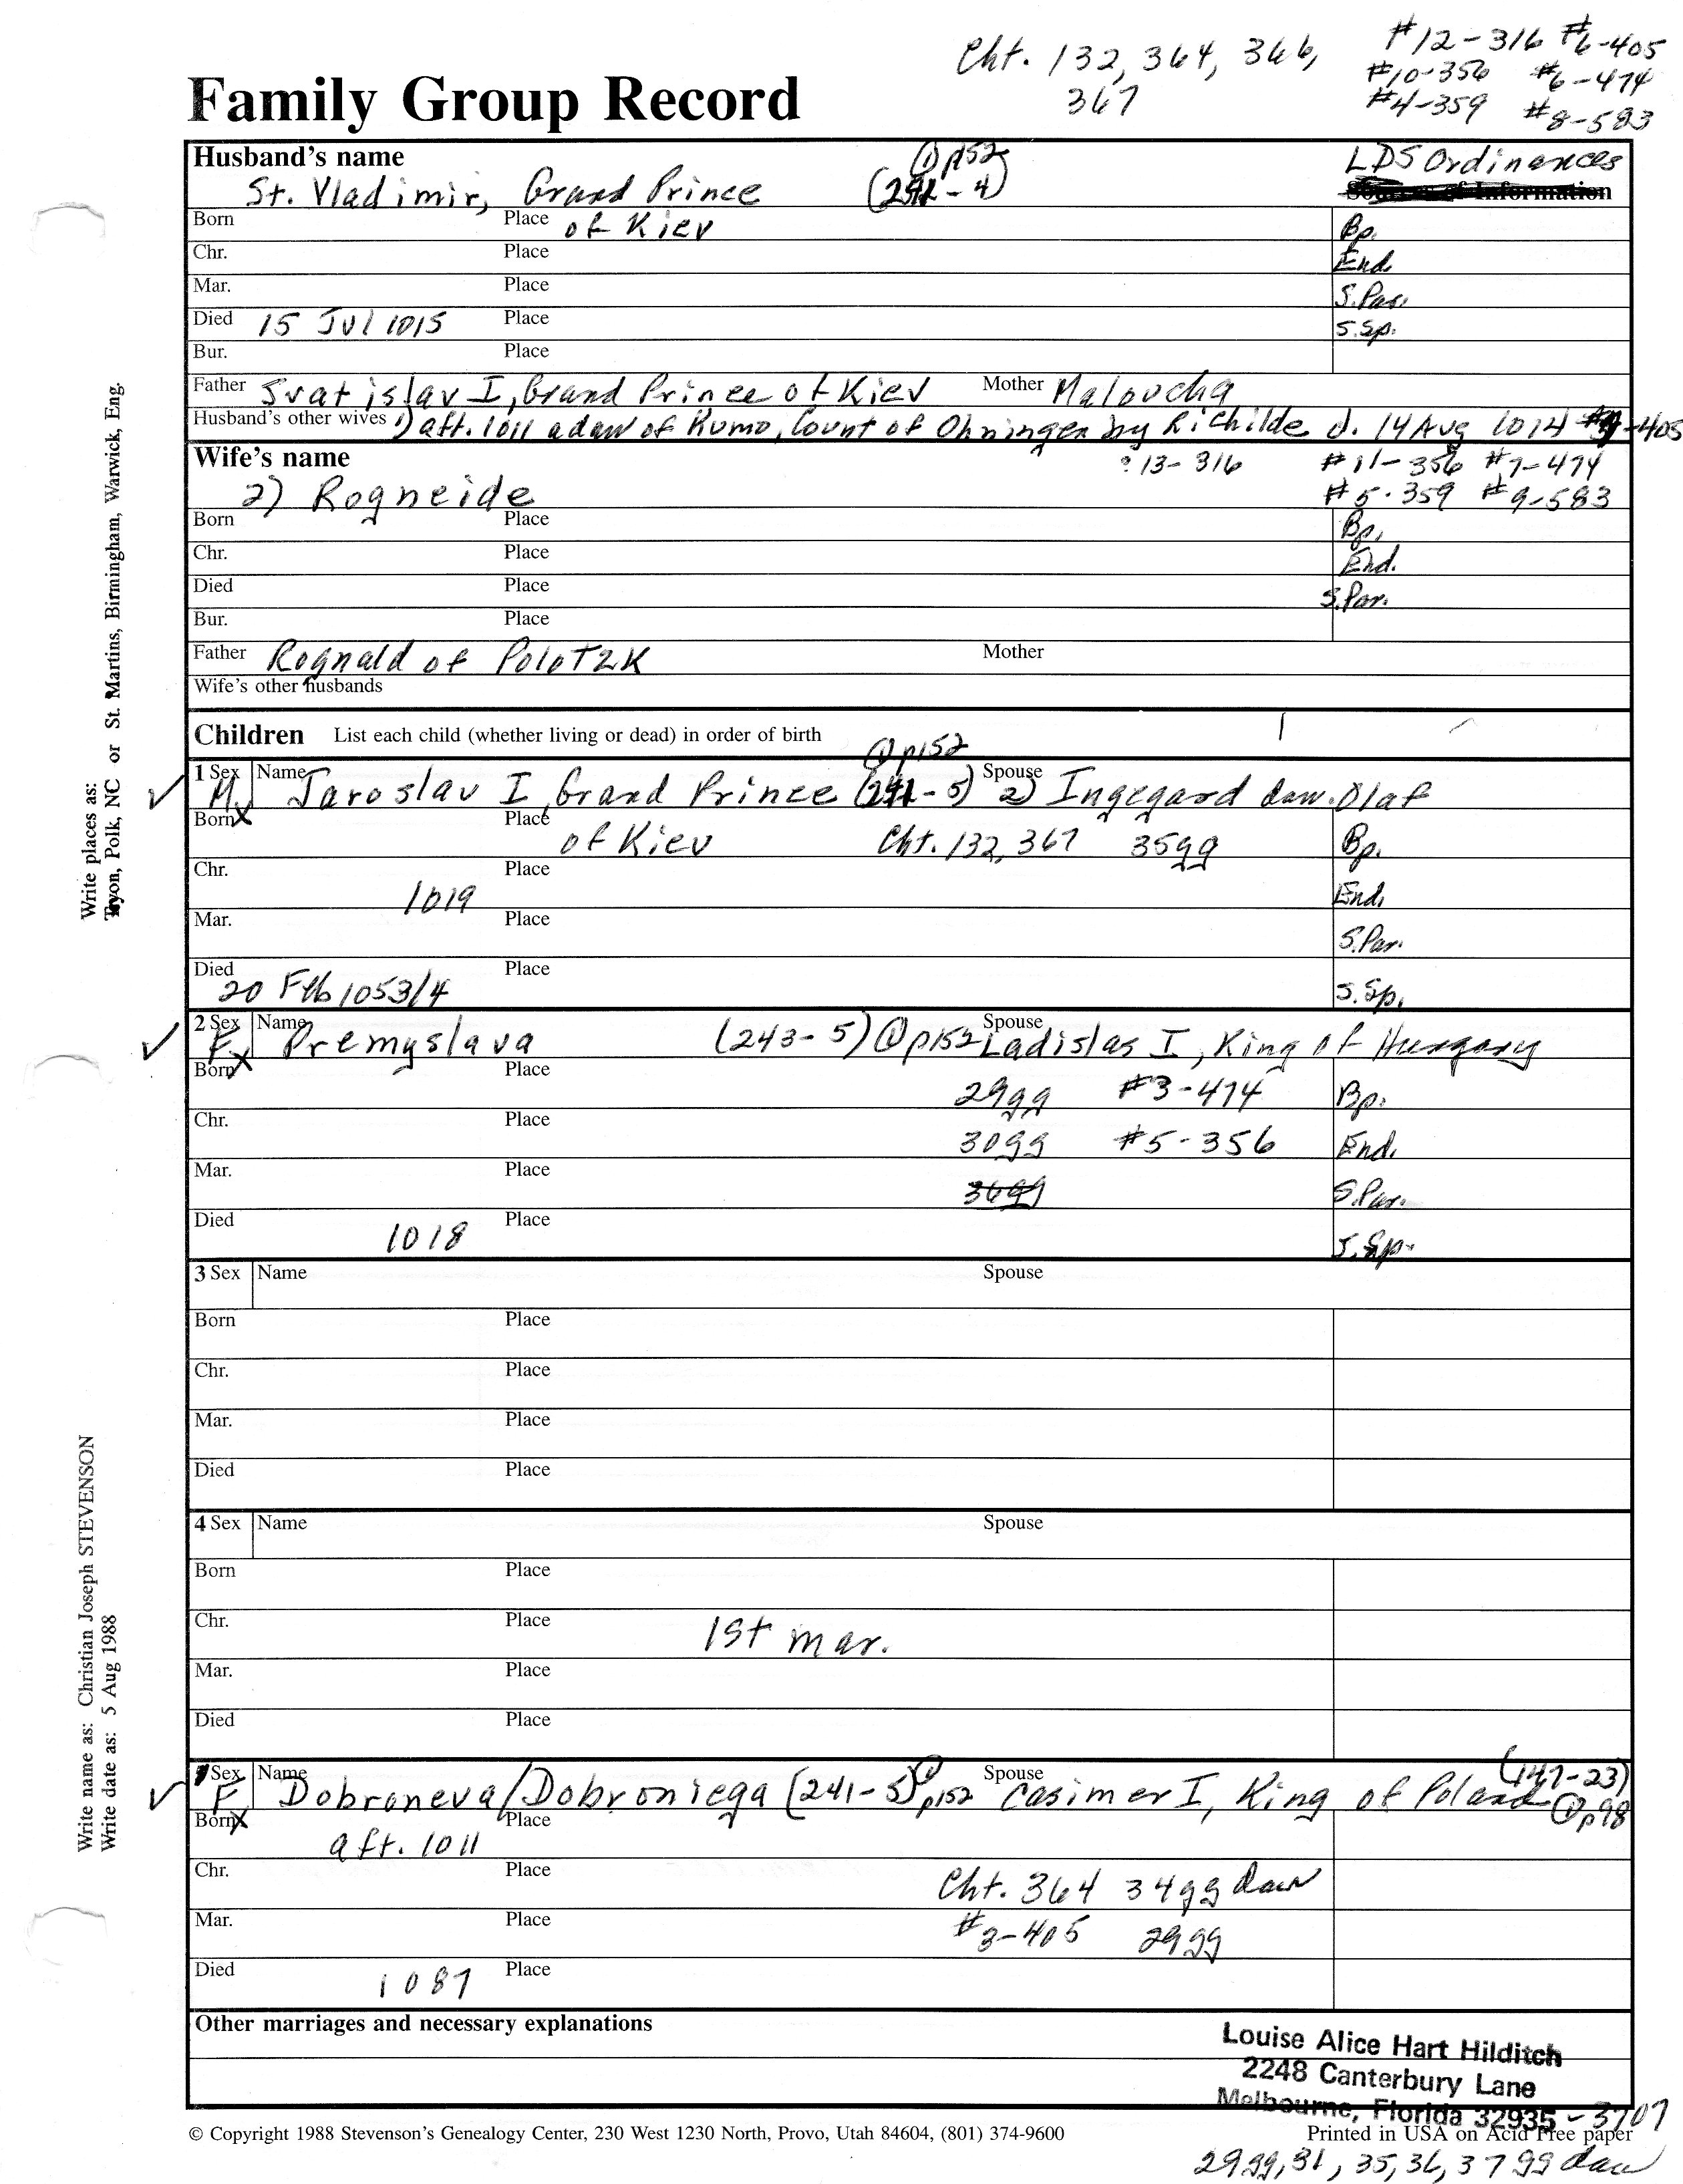 Cht. 132, 364, 366, #12-316 #6-405
367 #10-356 #6-474
#4-359 #8-583
Family Group Record
Husband's name ① p152 LDS Ordinances
St. Vladimir, Grand Prince (242-4) Sources of Information
Born Place of Kiev Bp.
Chr. Place End.
Mar. Place S.Par.
Died 15 Jul 1015 Place S.Sp.
Bur. Place
Father Svatislav I, Grand Prince of Kiev Mother Maloucha
Husband's other wives 1) aft. 1011 a daw of Kumo, Count of Ohningen by Richilde d. 14 Aug 1014 -405
Wife's name 13-316 #11-356 #7-474
2) Rogneide #5-359 #9-583
Born Place Bp.
Chr. Place End.
Died Place S.Par.
Bur. Place
Father Rognald of Polotzk Mother
Wife's other husbands
Children List each child (whether living or dead) in order of birth
① p152
1 Sex M. Name Jaroslav I, Grand Prince (241-5) Spouse 2) Ingegard daw. Olaf
Born X Place of Kiev Cht. 132, 367 35gg Bp.
Chr. 1019 Place End.
Mar. Place S.Par.
Died 20 Feb 1053/4 Place S.Sp.
2 Sex F. Name Premyslava (243-5) ① p152 Spouse Ladislas I, King of Hungary
Born X Place 29gg #3-474 Bp.
Chr. Place 30gg #5-356 End.
Mar. Place 36gg S.Par.
Died 1018 Place S.Sp.
3 Sex Name Spouse
Born Place
Chr. Place
Mar. Place
Died Place
4 Sex Name Spouse
Born Place
Chr. Place 1st mar.
Mar. Place
Died Place
1 Sex F. Name Dobroneva/Dobroniega (241-5) ① p152 Spouse Casimer I, King of Poland (147-23) ① p98
Born X aft. 1011 Place
Chr. Place Cht. 364 34gg daw
Mar. Place #3-405 29gg
Died 1087 Place
Other marriages and necessary explanations
Louise Alice Hart Hilditch
2248 Canterbury Lane
Melbourne, Florida 32935 - 3707
© Copyright 1988 Stevenson's Genealogy Center, 230 West 1230 North, Provo, Utah 84604, (801) 374-9600 Printed in USA on Acid Free paper
29gg, 31, 35, 36, 37gg daw
Write places as:
Tryon, Polk, NC or St. Martins, Birmingham, Warwick, Eng.
Write name as: Christian Joseph STEVENSON
Write date as: 5 Aug 1988